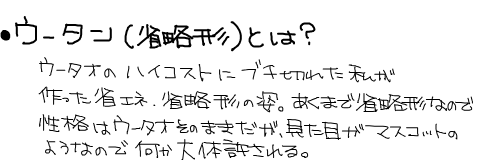 •ウータン(省略形)とは?
ウータオのハイコストにブチ切れた私が
作った省エネ、省略形の姿。あくまで省略形なので
性格はウータオそのままだが、見た目がマスコットの
ようなので何か大体許される。